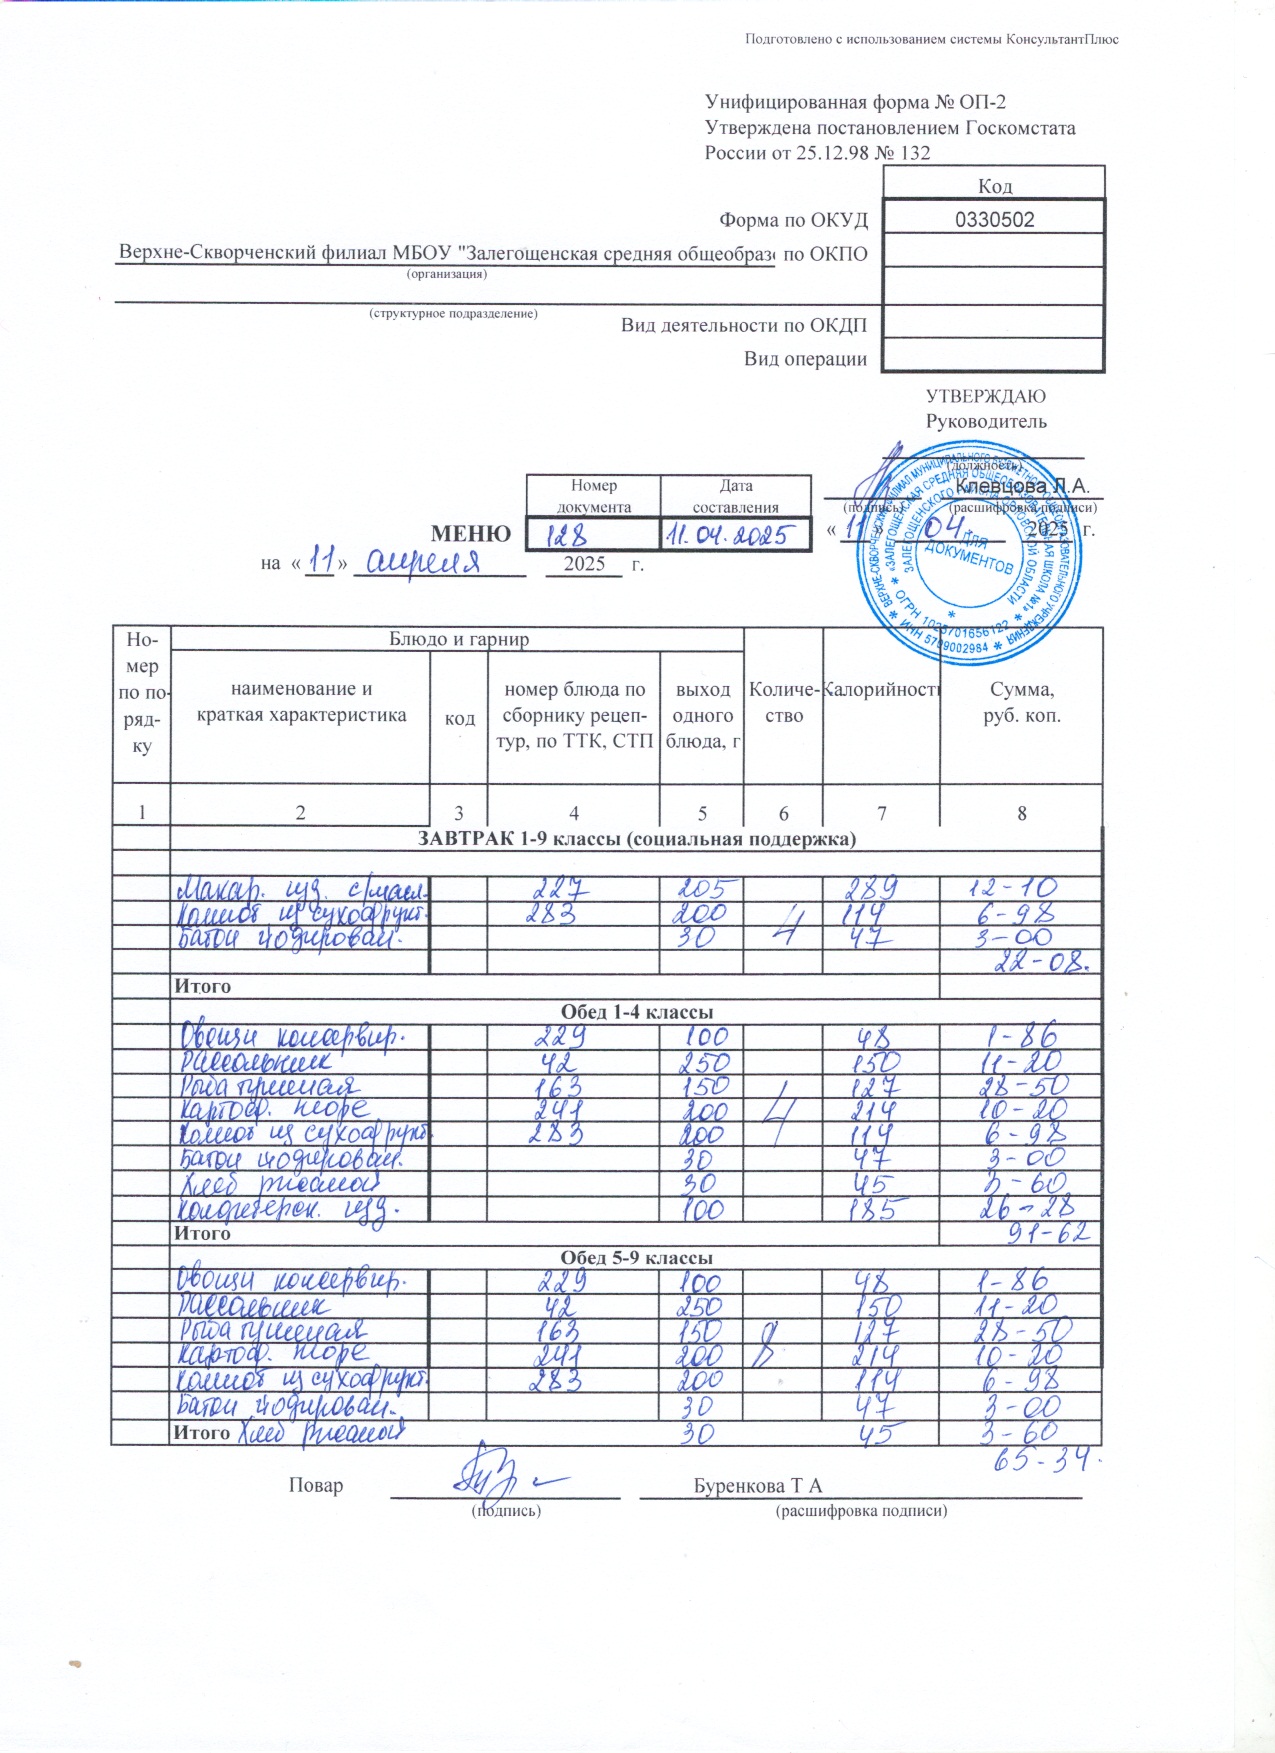 Подготовлено с использованием системы КонсультантПлюс
Унифицированная форма № ОП-2
Утверждена постановлением Госкомстата
России от 25.12.98 № 132
Код
Форма по ОКУД 0330502
Верхне-Скворченский филиал МБОУ "Залегощенская средняя общеобразо по ОКПО
(организация)
(структурное подразделение)
Вид деятельности по ОКДП
Вид операции
УТВЕРЖДАЮ
Руководитель
(должность)
Клевцова Л.А.
(подпись) (расшифровка подписи)
Номер документа Дата составления
МЕНЮ 128 11.04.2025 « 11 » 04. 2025 г.
на « 11 » апреля 2025 г.
ДЛЯ
ДОКУМЕНТОВ
ОГРН 1025701656122
ИНН 5709002984
Но-
мер
по по-
ряд-
ку
Блюдо и гарнир
наименование и
краткая характеристика
код
номер блюда по
сборнику рецеп-
тур, по ТТК, СТП
выход
одного
блюда, г
Количе-
ство
Калорийность
Сумма,
руб. коп.
1 2 3 4 5 6 7 8
ЗАВТРАК 1-9 классы (социальная поддержка)
Макар. изд. с/масл. 227 205 289 12-10
Компот из сухофрукт. 283 200 4 114 6-98
Батон йодирован. 30 47 3-00
22-08.
Итого
Обед 1-4 классы
Овощи консервир. 229 100 48 1-86
Рассольник 42 250 150 11-20
Рыба тушеная 163 150 4 127 28-50
Картоф. пюре 241 200 214 10-20
Компот из сухофрукт. 283 200 114 6-98
Батон йодирован. 30 47 3-00
Хлеб ржаной 30 45 3-60
Кондитерск. изд. 100 185 26-28
Итого 91-62
Обед 5-9 классы
Овощи консервир. 229 100 48 1-86
Рассольник 42 250 150 11-20
Рыба тушеная 163 150 8 127 28-50
Картоф. пюре 241 200 214 10-20
Компот из сухофрукт. 283 200 114 6-98
Батон йодирован. 30 47 3-00
Итого Хлеб ржаной 30 45 3-60
65-34.
Повар Буренкова Т А
(подпись) (расшифровка подписи)